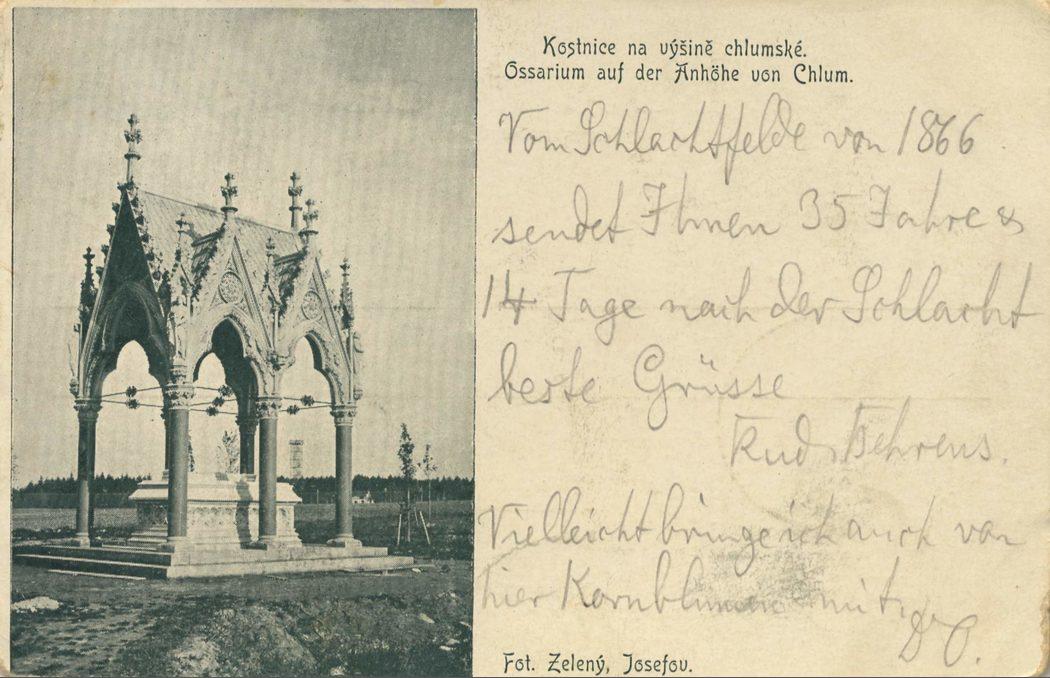 Kostnice na výšině chlumské.
Ossarium auf der Anhöhe von Chlum.
Vom Schlachtfelde von 1866
sendet Ihnen 35 Jahre &
14 Tage nach der Schlacht
beste Grüsse
Rud. Behrens.
Vielleicht bringe ich auch von
hier Kornblumen mit.
D. O.
Fot. Zelený, Josefov.